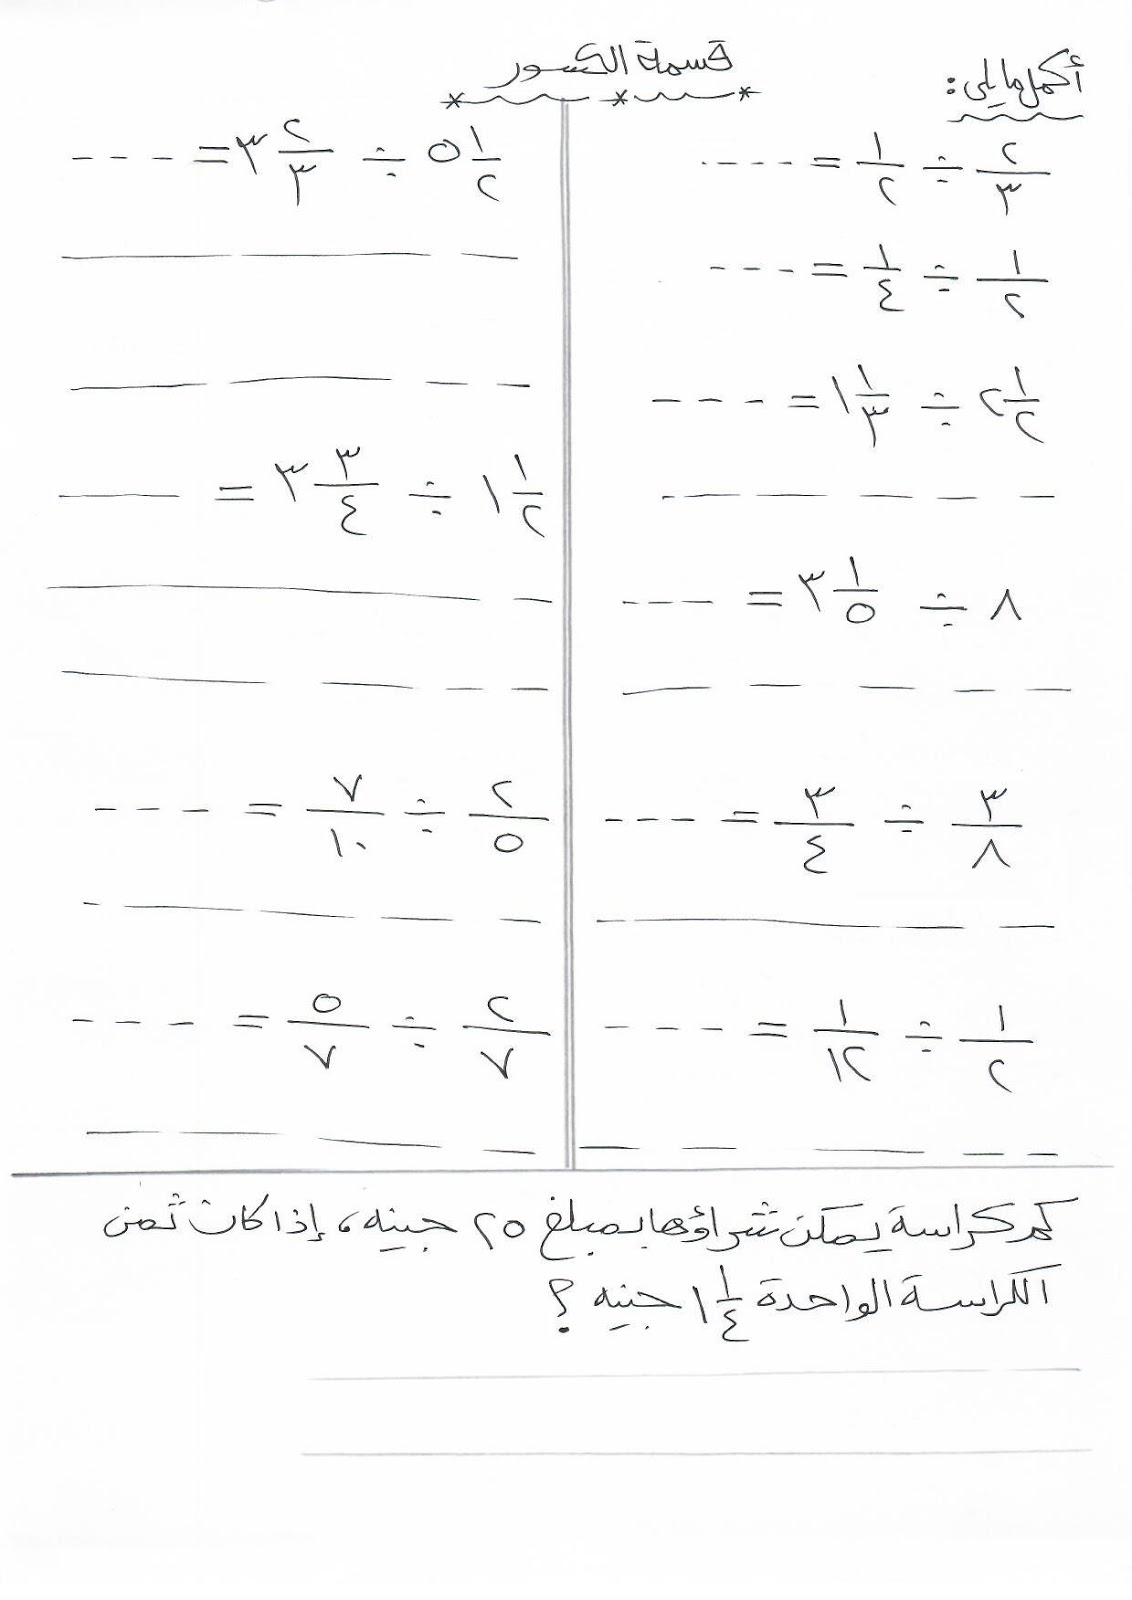 قسمة الكسور
أكمل ما يلى:
٢/٣ ÷ ١/٢ = ----
١/٢ ÷ ١/٤ = ---
٢ ١/٢ ÷ ١ ١/٣ = ---
٨ ÷ ٣ ١/٥ = ---
٣/٨ ÷ ٣/٤ = ---
١/٢ ÷ ١/١٢ = ---
٥ ١/٢ ÷ ٣ ٢/٣ = ---
١ ١/٢ ÷ ٣ ٣/٤ =
٢/٥ ÷ ٧/١٠ = ---
٢/٧ ÷ ٥/٧ = ---
كم كراسة يمكن شراؤها بمبلغ ٢٥ جينه، إذا كان ثمن
الكراسة الواحدة ١ ١/٤ جنيه ؟